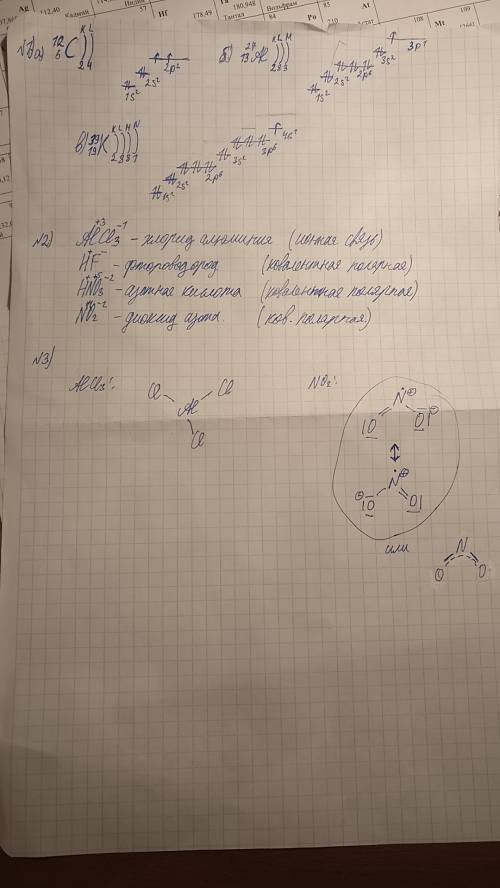 Ag 112,40 Кадмий 57 Hf 178,49 Тантал 180,948 84 Вольфрам Po 85 At 108 109 Mt
210
N1) а) 12 6 C K L 2 4 1s² 2s² 2p² б) 27 13 Al K L M 2 8 3 1s² 2s² 2p⁶ 3s² 3p¹
в) 39 19 K K L M N 2 8 8 1 1s² 2s² 2p⁶ 3s² 3p⁶ 4s¹
N2) AlCl₃ +3 -1 – хлорид алюминия (ионная связь)
HF + - – фтороводород (ковалентная полярная)
HNO₃ + +5 -2 – азотная кислота (ковалентная полярная)
NO₂ +4 -2 – диоксид азота. (ков. полярная)
N3)
AlCl₃: Cl Cl Al Cl NO₂: N ⊕ O O ⊖
N ⊕ ⊖ O O
или
N
O O